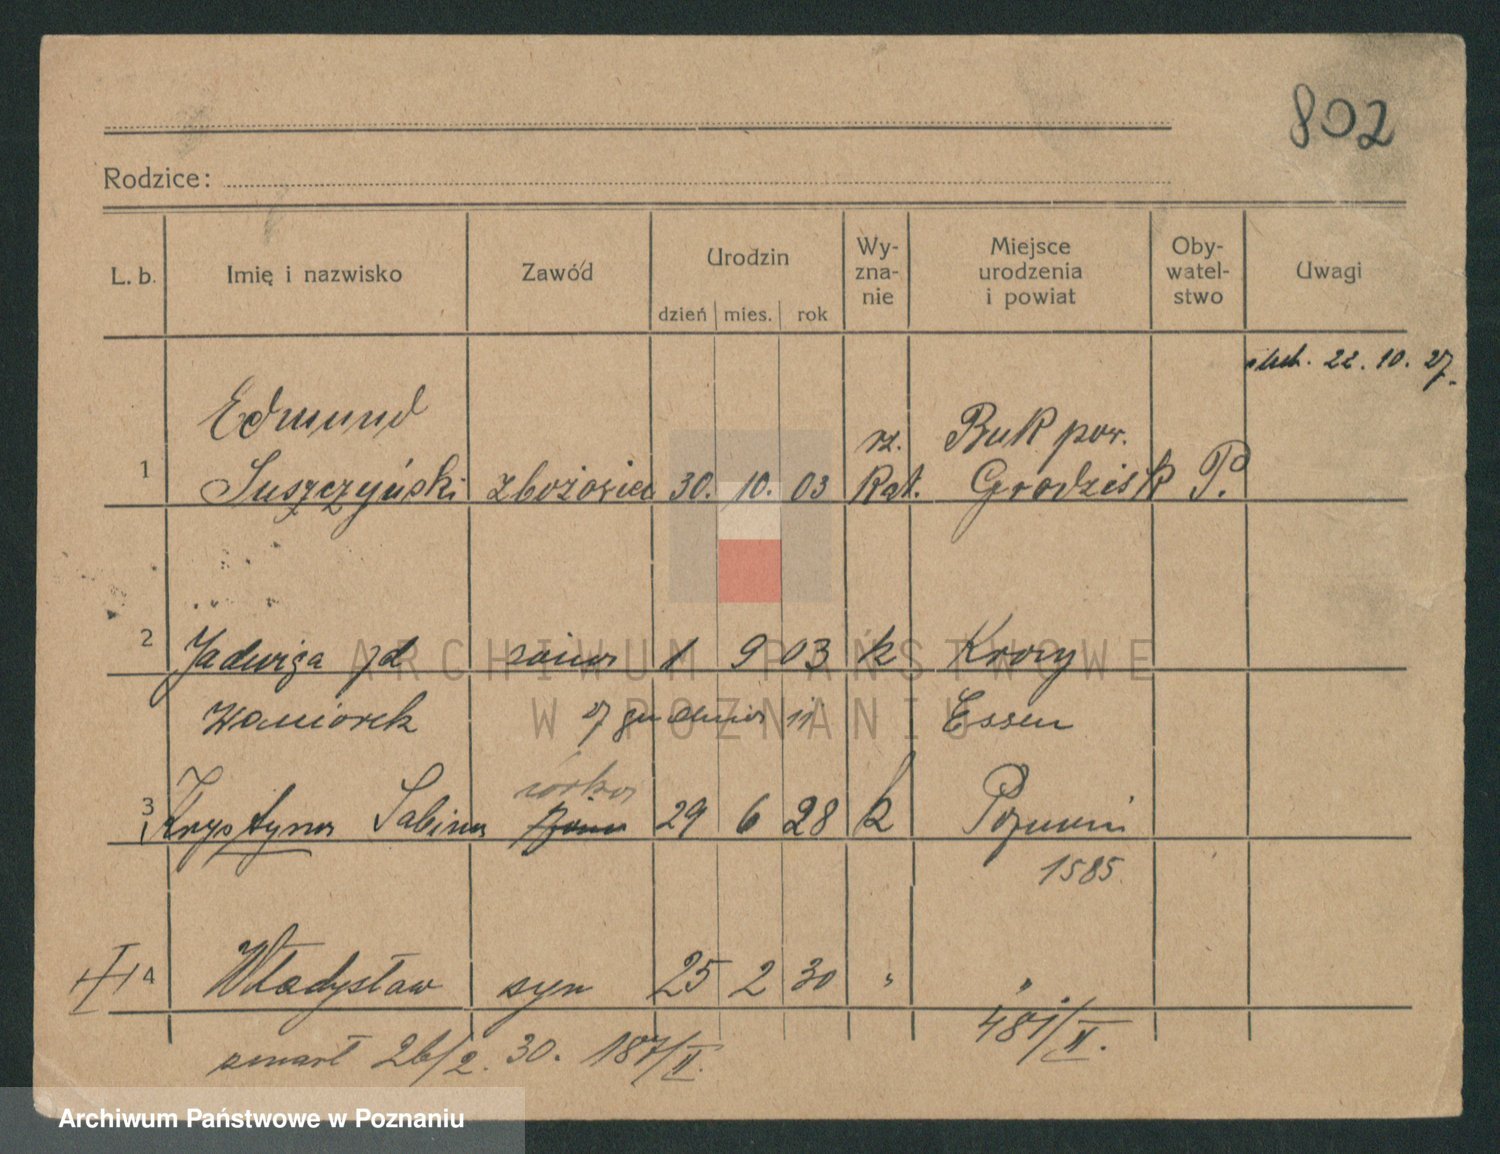 802
Rodzice:
L. b. Imię i nazwisko Zawód Urodzin dzień mies. rok Wy-zna-nie Miejsce urodzenia i powiat Oby-watel-stwo Uwagi
22. 10. 27.
Edmund rz. Buk pow.
1 Suszczyński zbożowiec 30. 10. 03 Kat. Grodzisk P.
2 Jadwiga zd żona 1 9 03 k
27 grudnia 11 Essen
córka
3 Krystyna Sabina żona 29 6 28 k Poznań
1585
4 Władysław syn 25 2 30 " "
481/II.
zmarł 26/2. 30. 187/II.
ARCHIWUM PAŃSTWOWE
W POZNANIU
Archiwum Państwowe w Poznaniu